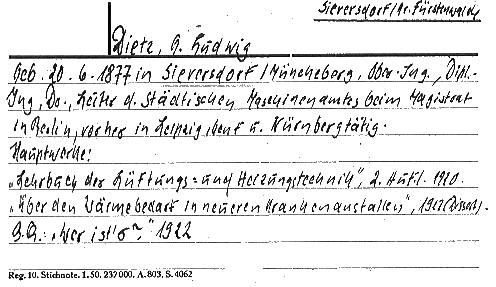 Sieversdorf/Kr. Fürstenwalde
Dietz, G. Ludwig
Geb. 20. 6. 1877 in Sieversdorf/Müncheberg, Ober-Ing., Dipl.-
Ing., Do., Leiter d. Städtischen Maschinenamtes beim Magistrat
in Berlin, vorher in Leipzig, Genf u. Nürnberg tätig.
Hauptwerke:
„Lehrbuch der Lüftungs- und Heizungstechnik", 2. Aufl. 1920.
„Über den Wärmebedarf in neueren Krankenanstalten", (Dissert.).
"Wer ist's?" 1922
Reg. 10. Stichnote. I. 50. 237000. A. 803. S. 4062